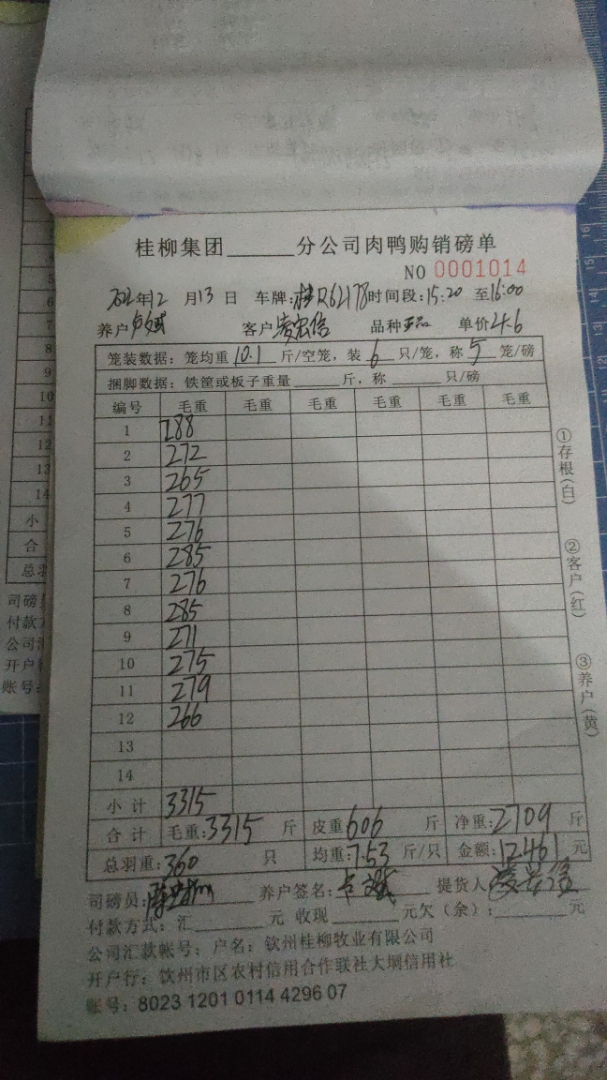 桂柳集团______分公司肉鸭购销磅单
NO 0001014
2022年12月13日 车牌:桂R62178时间段:15:20 至16:00
养户 客户凌宏信 品种 单价4.6
笼装数据：笼均重10.1斤/空笼，装6只/笼，称5笼/磅
捆脚数据：铁筐或板子重量______斤，称______只/磅
编号 毛重 毛重 毛重 毛重 毛重 毛重
1 288
2 272
3 265
4 277
5 276
6 285
7 276
8 285
9 271
10 275
11 279
12 266
13
14
小计 3315
合计 毛重:3315斤 皮重606斤 净重:2709斤
总羽重:360只 均重:7.53斤/只 金额:12461元
司磅员: 养户签名: 提货人
付款方式：汇______元 收现______元欠（余）:______元
公司汇款帐号：户名：钦州桂柳牧业有限公司
开户行：钦州市区农村信用合作联社大垌信用社
账号：8023 1201 0114 4296 07
①存根(白)
②客户(红)
③养户(黄)
5
7
8
9
10
11
12
13
14
小
合
总羽
司磅员
付款方
公司汇
开户行
账号: